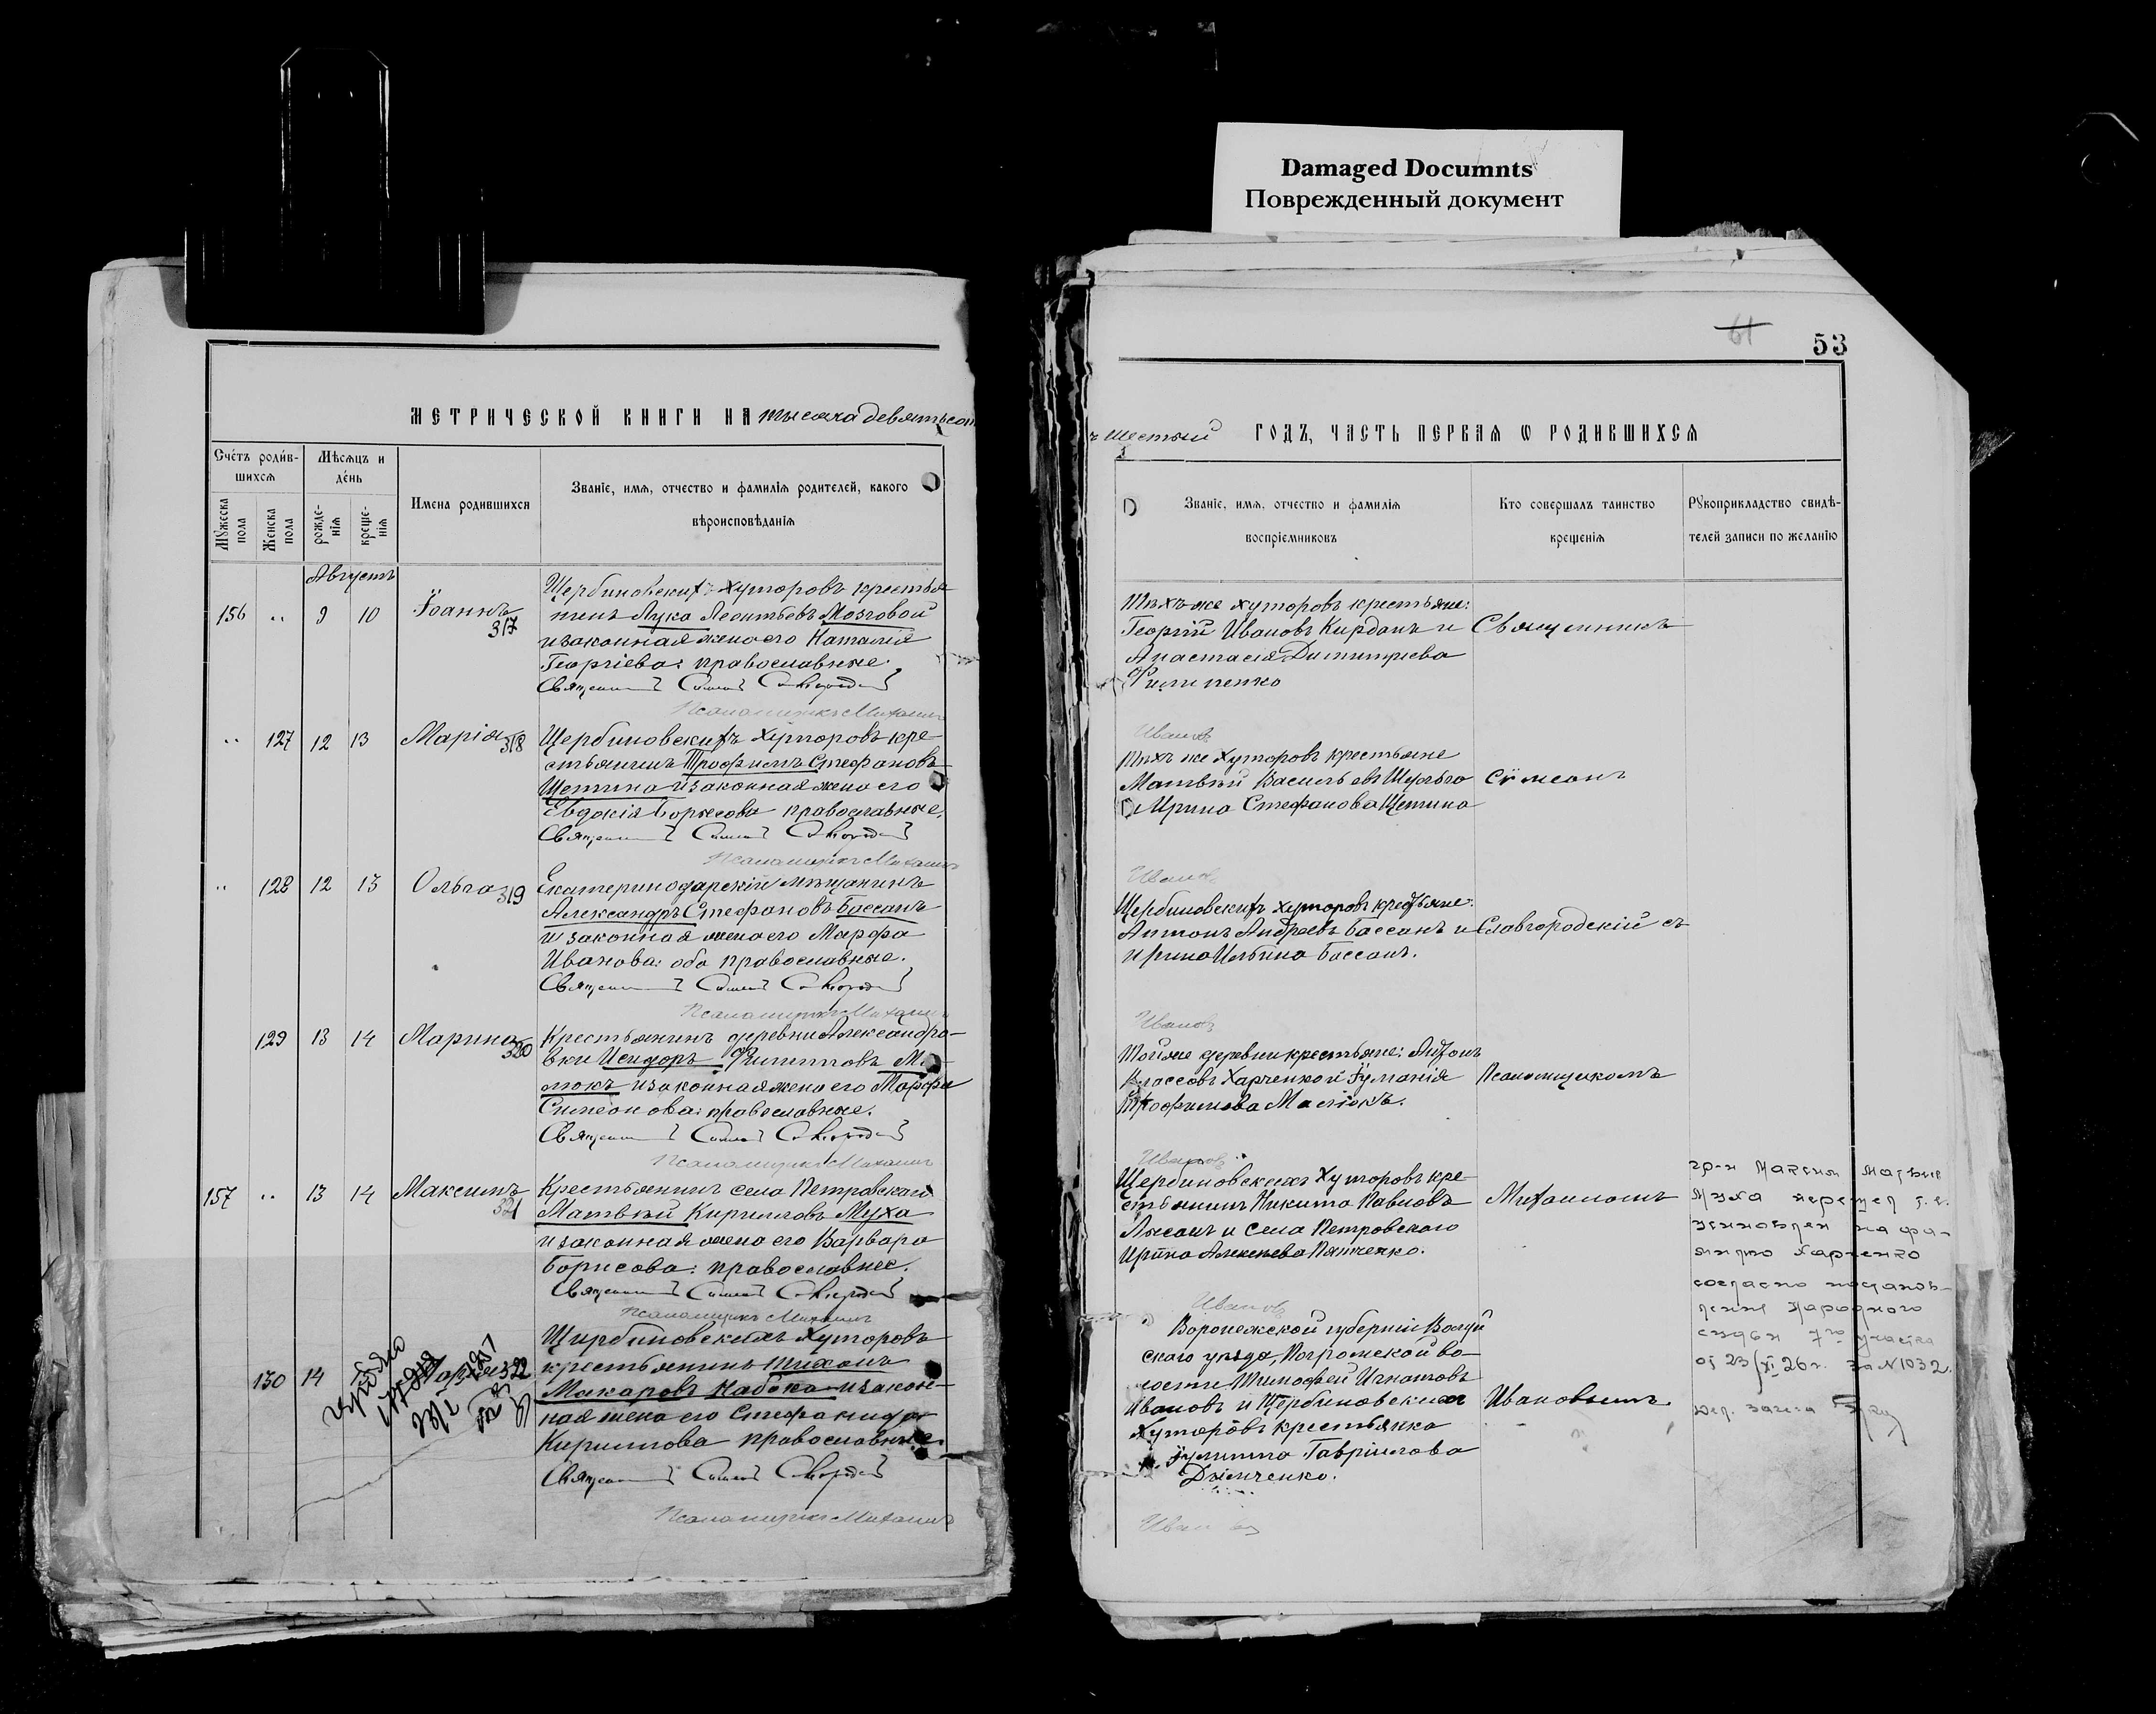 Damaged Documnts
Поврежденный документ
53
МЕТРИЧЕСКОЙ КНИГИ НА тысяча девятьсот
Счетъ родив-
шихся
Мѣсяцъ и
день
Мужеска пола
Женска пола
рожде-
нія
креще-
нія
Имена родившихся
Званіе, имя, отчество и фамилія родителей, какого
вѣроисповѣданія
Августъ
156 „ 9 10 Іоаннъ 317
Щербиновскихъ хуторовъ крестья
нинъ Лука Леонтьевъ Мозговой
и законная жена его Наталія
Георгіева: православные.
Псаломщикъ Михаилъ
„ 127 12 13 Марія 318
Щербиновскихъ хуторовъ кре-
стьянинъ Трофимъ Стефановъ
Щетина и законная жена его
Евдокія Борисова православные.
Псаломщикъ Михаилъ
„ 128 12 13 Ольга 319
Екатеринодарскій мѣщанинъ
Александръ Стефановъ Бассанъ
и законная жена его Марфа
Иванова: оба православные.
Псаломщикъ Михаилъ
129 13 14 Марина 320
Крестьянинъ деревни Александро-
вки Исидоръ Филипповъ Ма-
люкъ и законная жена его Марфа
Симеонова: православные.
Псаломщикъ Михаилъ
157 „ 13 14 Максимъ 321
Крестьянинъ села Петровскаго
Матвѣй Кирилловъ Муха
и законная жена его Варвара
Борисова: православные.
Псаломщикъ Михаилъ
130 14 322
Щербиновскихъ хуторовъ
крестьянинъ Тихонъ
Макаровъ Набока и закон-
ная жена его Стефанида
Кириллова православные.
Псаломщикъ Михаилъ
ъ шестый ГОДЪ, ЧАСТЬ ПЕРВАЯ Ѡ РОДИВШИХСЯ
Званіе, имя, отчество и фамилія
воспріемниковъ
Кто совершалъ таинство
крещенія
Рукоприкладство свидѣ-
телей записи по желанію
Тѣхъ же хуторовъ крестьяне:
Георгій Ивановъ Кирданъ и
Анастасія Димитріева
Филипенко
Священникъ
Ивановъ
Тѣхъ же хуторовъ крестьяне
Матвѣй Васильевъ Шульга
и Ирина Стефанова Щетина
Сѵмеонъ
Ивановъ
Щербиновскихъ хуторовъ крестьяне:
Антонъ Андреевъ Бассанъ и
Ирина Ильина Бассанъ.
Славгородскій съ
Ивановъ
Той же деревни крестьяне:
Власовъ Харченко и Іуліанія
Трофимова Малюкъ.
Псаломщикомъ
Ивановъ
Щербиновскихъ хуторовъ кре
стьянинъ Никита Павловъ
и села Петровскаго
Ирина Алексѣева
Михаиломъ
гр-н Максим Матвие
Муха перешел
на фа-
милию Харченко
согласно постанов-
ления Народного
судьи 7го участка
от 23/XI 26 г. за N 1032.
Ивановъ
Воронежской губерніи Валуй
скаго уѣзда, Погромской во-
лости Тимофей Игнатовъ
Ивановъ и Щербиновскихъ
хуторовъ крестьянка
Іулитта Гавріилова
Ивановымъ.
Ивановъ